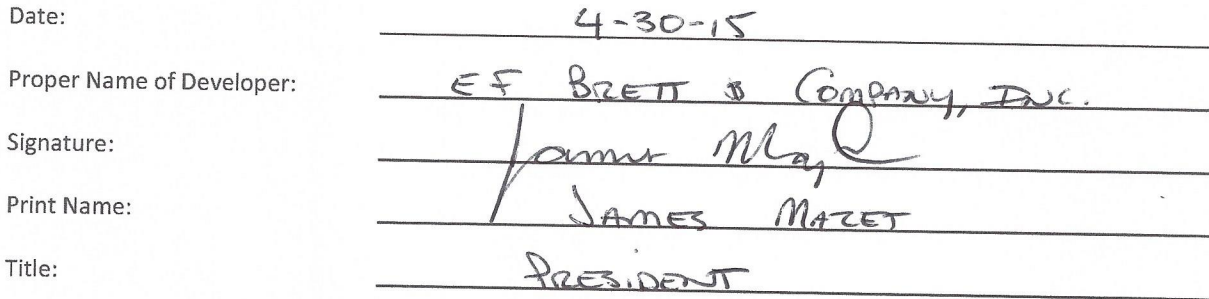 Date: 4-30-15
Proper Name of Developer: EF BRETT & COMPANY, INC.
Signature: James
Print Name: JAMES MAZET
Title: PRESIDENT